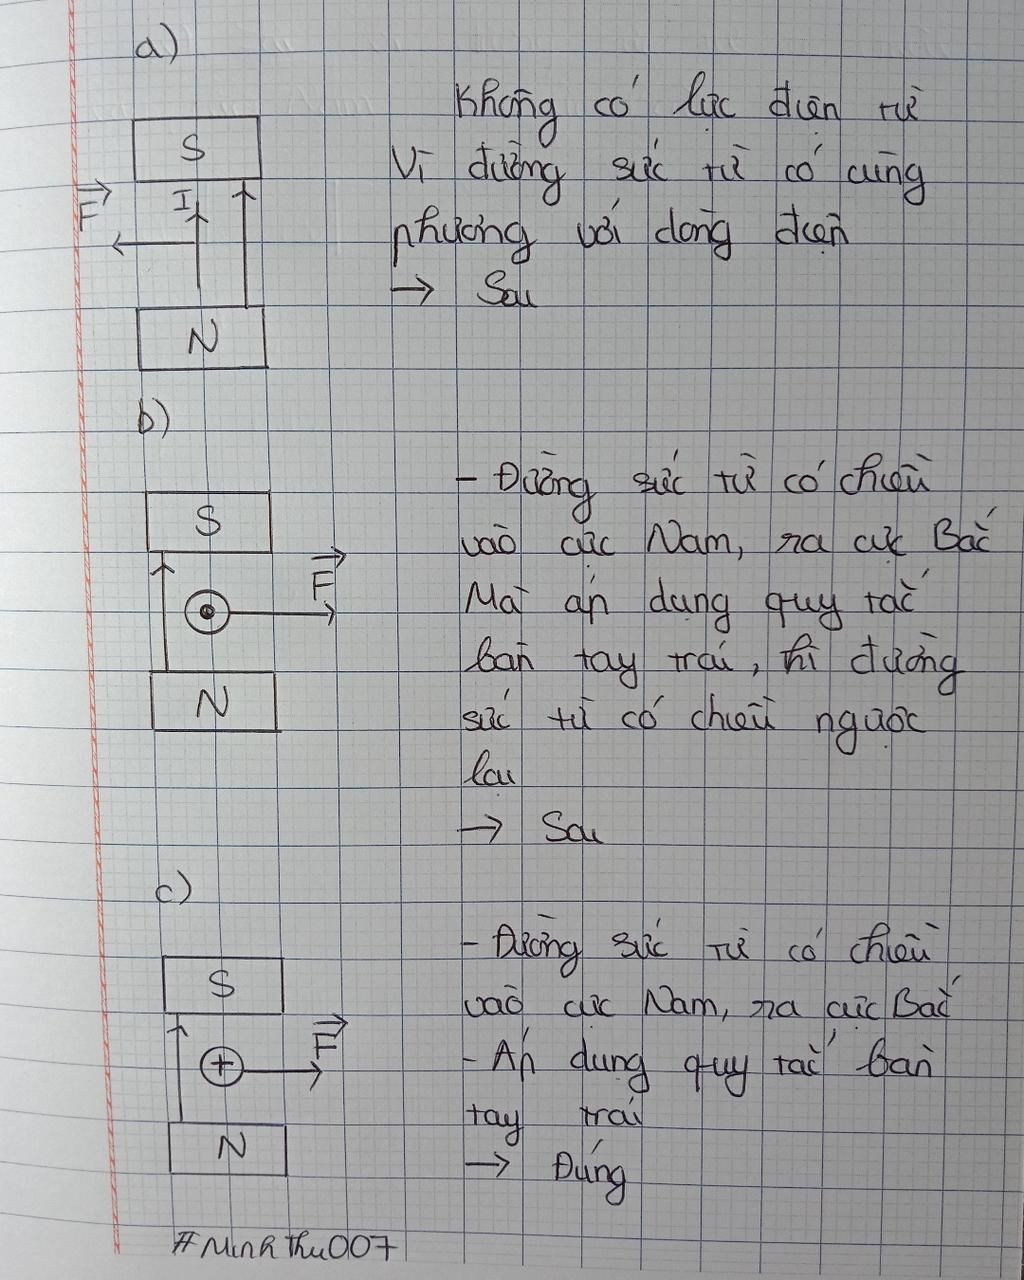 a)
S
F
I
N
Không có lực điện từ
Vì đường sức từ có cùng
phương với dòng điện
→ Sai
b)
S
F
N
- Đường sức từ có chiều
vào cực Nam, ra cực Bắc
Mà áp dụng quy tắc
bàn tay trái, thì đường
sức từ có chiều ngược
lại
→ Sai
c)
S
F
N
- Đường sức từ có chiều
vào cực Nam, ra cực Bắc
- Áp dụng quy tắc bàn
tay trái
→ Đúng
#MinhThu007